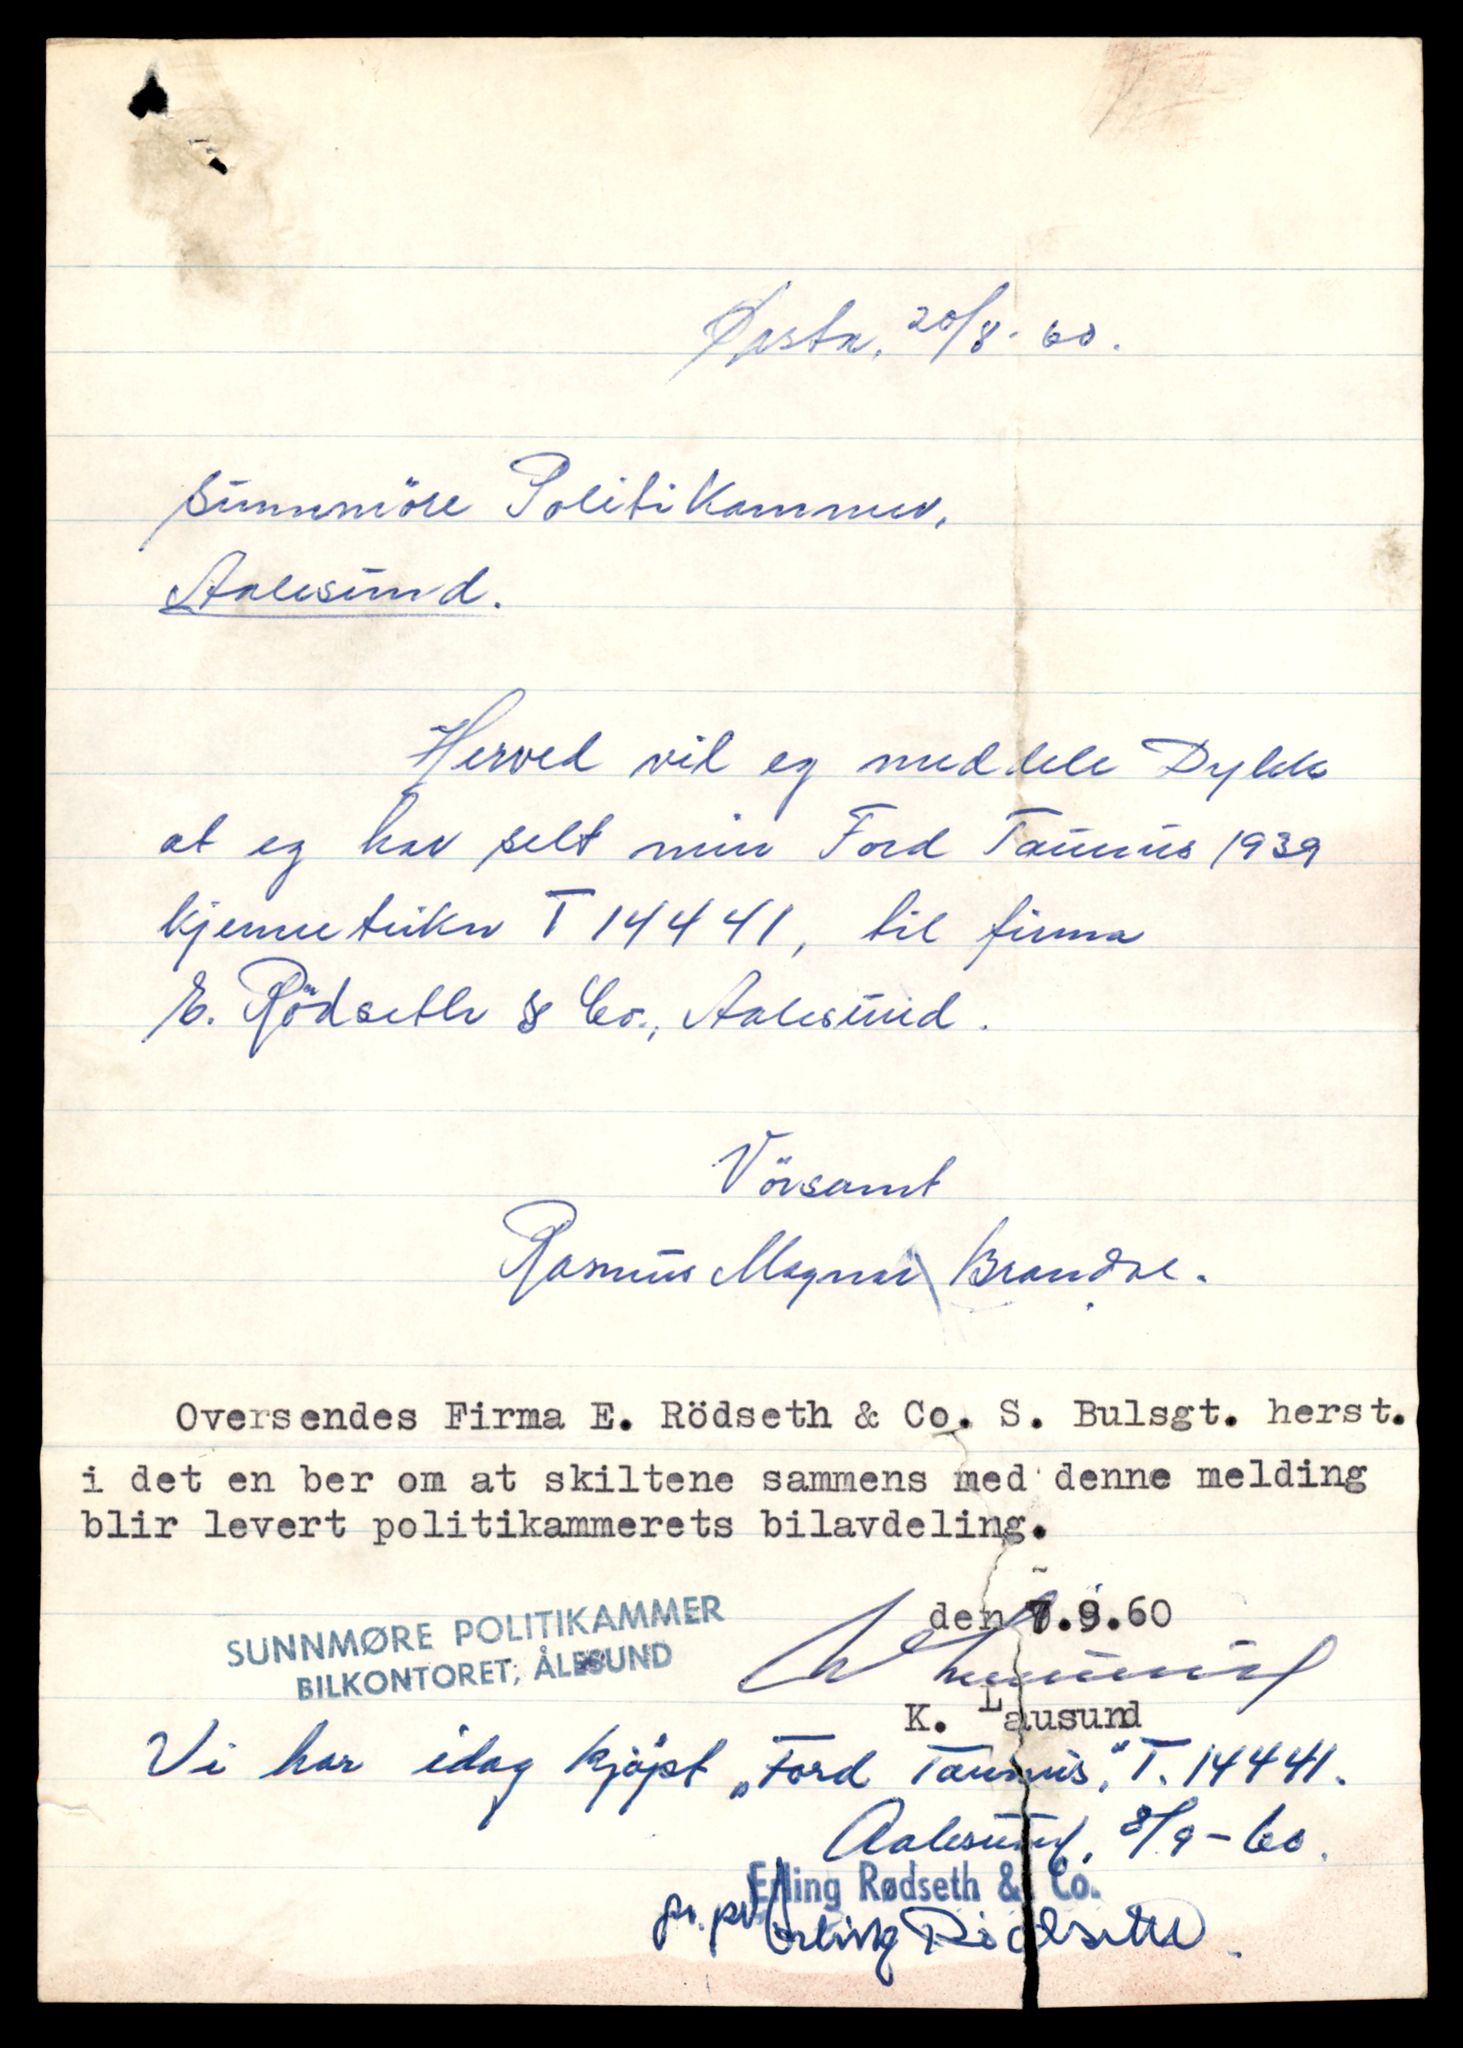 Ørsta, 20/8-60.
Sunnmöre Politikammer,
Aalesund.
Herved vil eg meddele Dykk
at eg har selt min Ford Taunus 1939
kjenneteikn T 14441, til firma
E. Rödseth & Co., Aalesund.
Vörsamt
Rasmus Magnar Brandal.
Oversendes Firma E. Rödseth & Co. S. Bulsgt. herst.
i det en ber om at skiltene sammens med denne melding
blir levert politikammerets bilavdeling.
den 7.9.60
SUNNMØRE POLITIKAMMER
BILKONTORET, ÅLESUND
K. Lausund
Vi har idag kjöpt „Ford Taunus," T. 14441.
Aalesund, 8/9-60.
Erling Rødseth & Co.
pr. pr. Erling Rödseth.